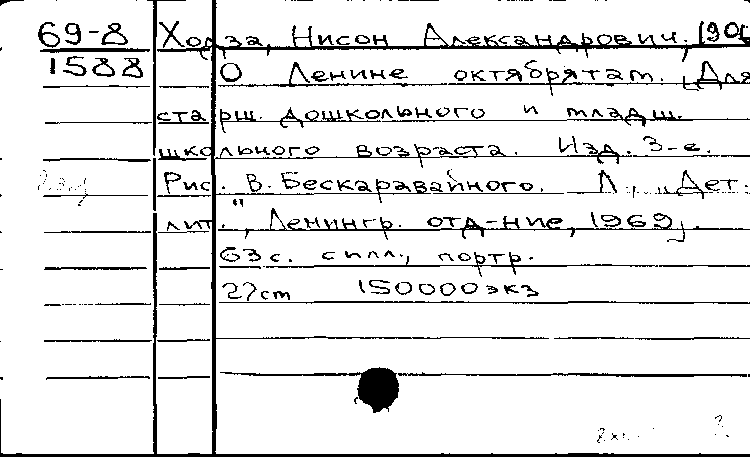 69-8 Ходза, Нисон Александрович, 190
1588 О Ленине октябрятам. [Для
старш. дошкольного и младш.
школьного возраста. Изд. 3-е.
Рис. В. Бескаравайного. Л., „Дет.
лит.", Ленингр. отд-ние, 1969].
63 с. с илл., портр.
27 cm 150000 экз